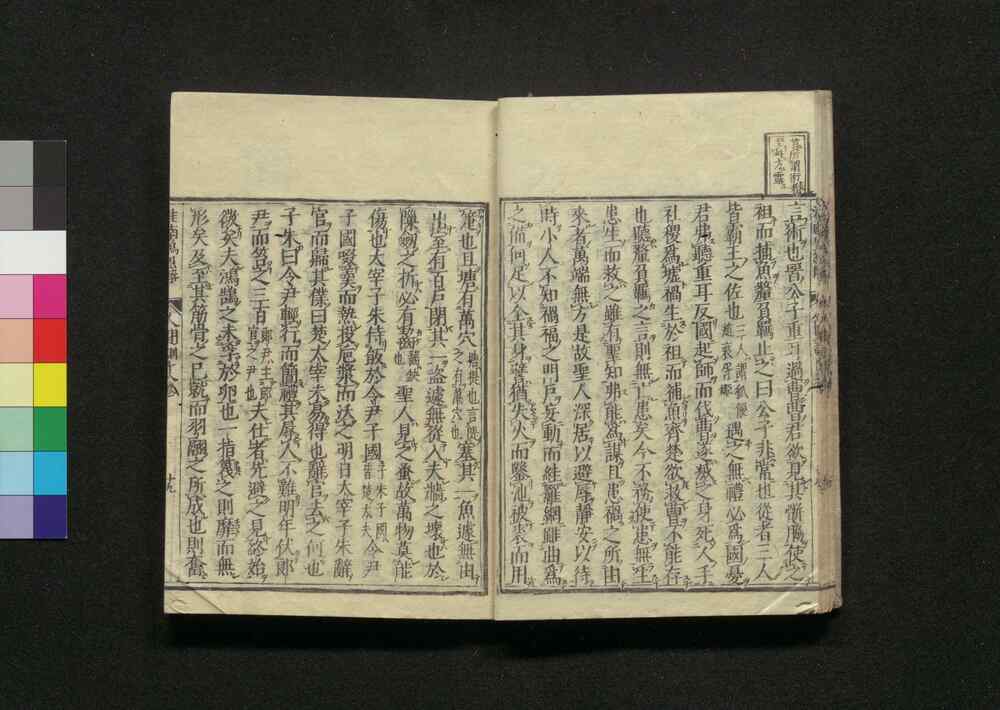 言術也晉公子重耳過曹曹君欲見其骿脇使之
袒而捕魚釐負羈止之曰公子非常也從者三人
皆霸王之佐也三人謂狐偃趙衰胥臣遇之無禮必為國憂
君弗聽重耳反國起師而伐曹遂滅之身死人手
社稷為墟禍生於袒而捕魚齊楚欲救曹不能存
也聽釐負羈之言則無亡患矣今不務使患無生
患生而救之雖有聖知弗能為謀且患禍之所由
來者萬端無方是故聖人深居以避辱靜安以待
時小人不知禍福之門戶妄動而絓羅網雖曲為
之備何足以全其身譬猶失火而鑿池被裘而用
箑也且塘有萬穴塘堤也言堤之有萬穴也塞其一魚遽無由
出室有百戶閉其一盜遽無從入夫牆之壞也於
隙劍之折必有齧齧缺也聖人見之蚤故萬物莫能
傷也太宰子朱侍飯於令尹子國子朱子國皆楚大夫令尹
子國啜羹而熱投巵漿而沃之明日太宰子朱辭
官而歸其僕曰楚太宰未易得也辭官去之何也
子朱曰令尹輕行而簡禮其辱人不難明年伏郎
尹而笞之三百郎尹主郎官之尹也夫仕者先避之見終始
微矣夫鴻鵠之未孚於卵也一指篾之則靡而無
形矣及至其筋骨之已就而羽翮之所成也則奮
淮南鴻烈解
人間訓
十九